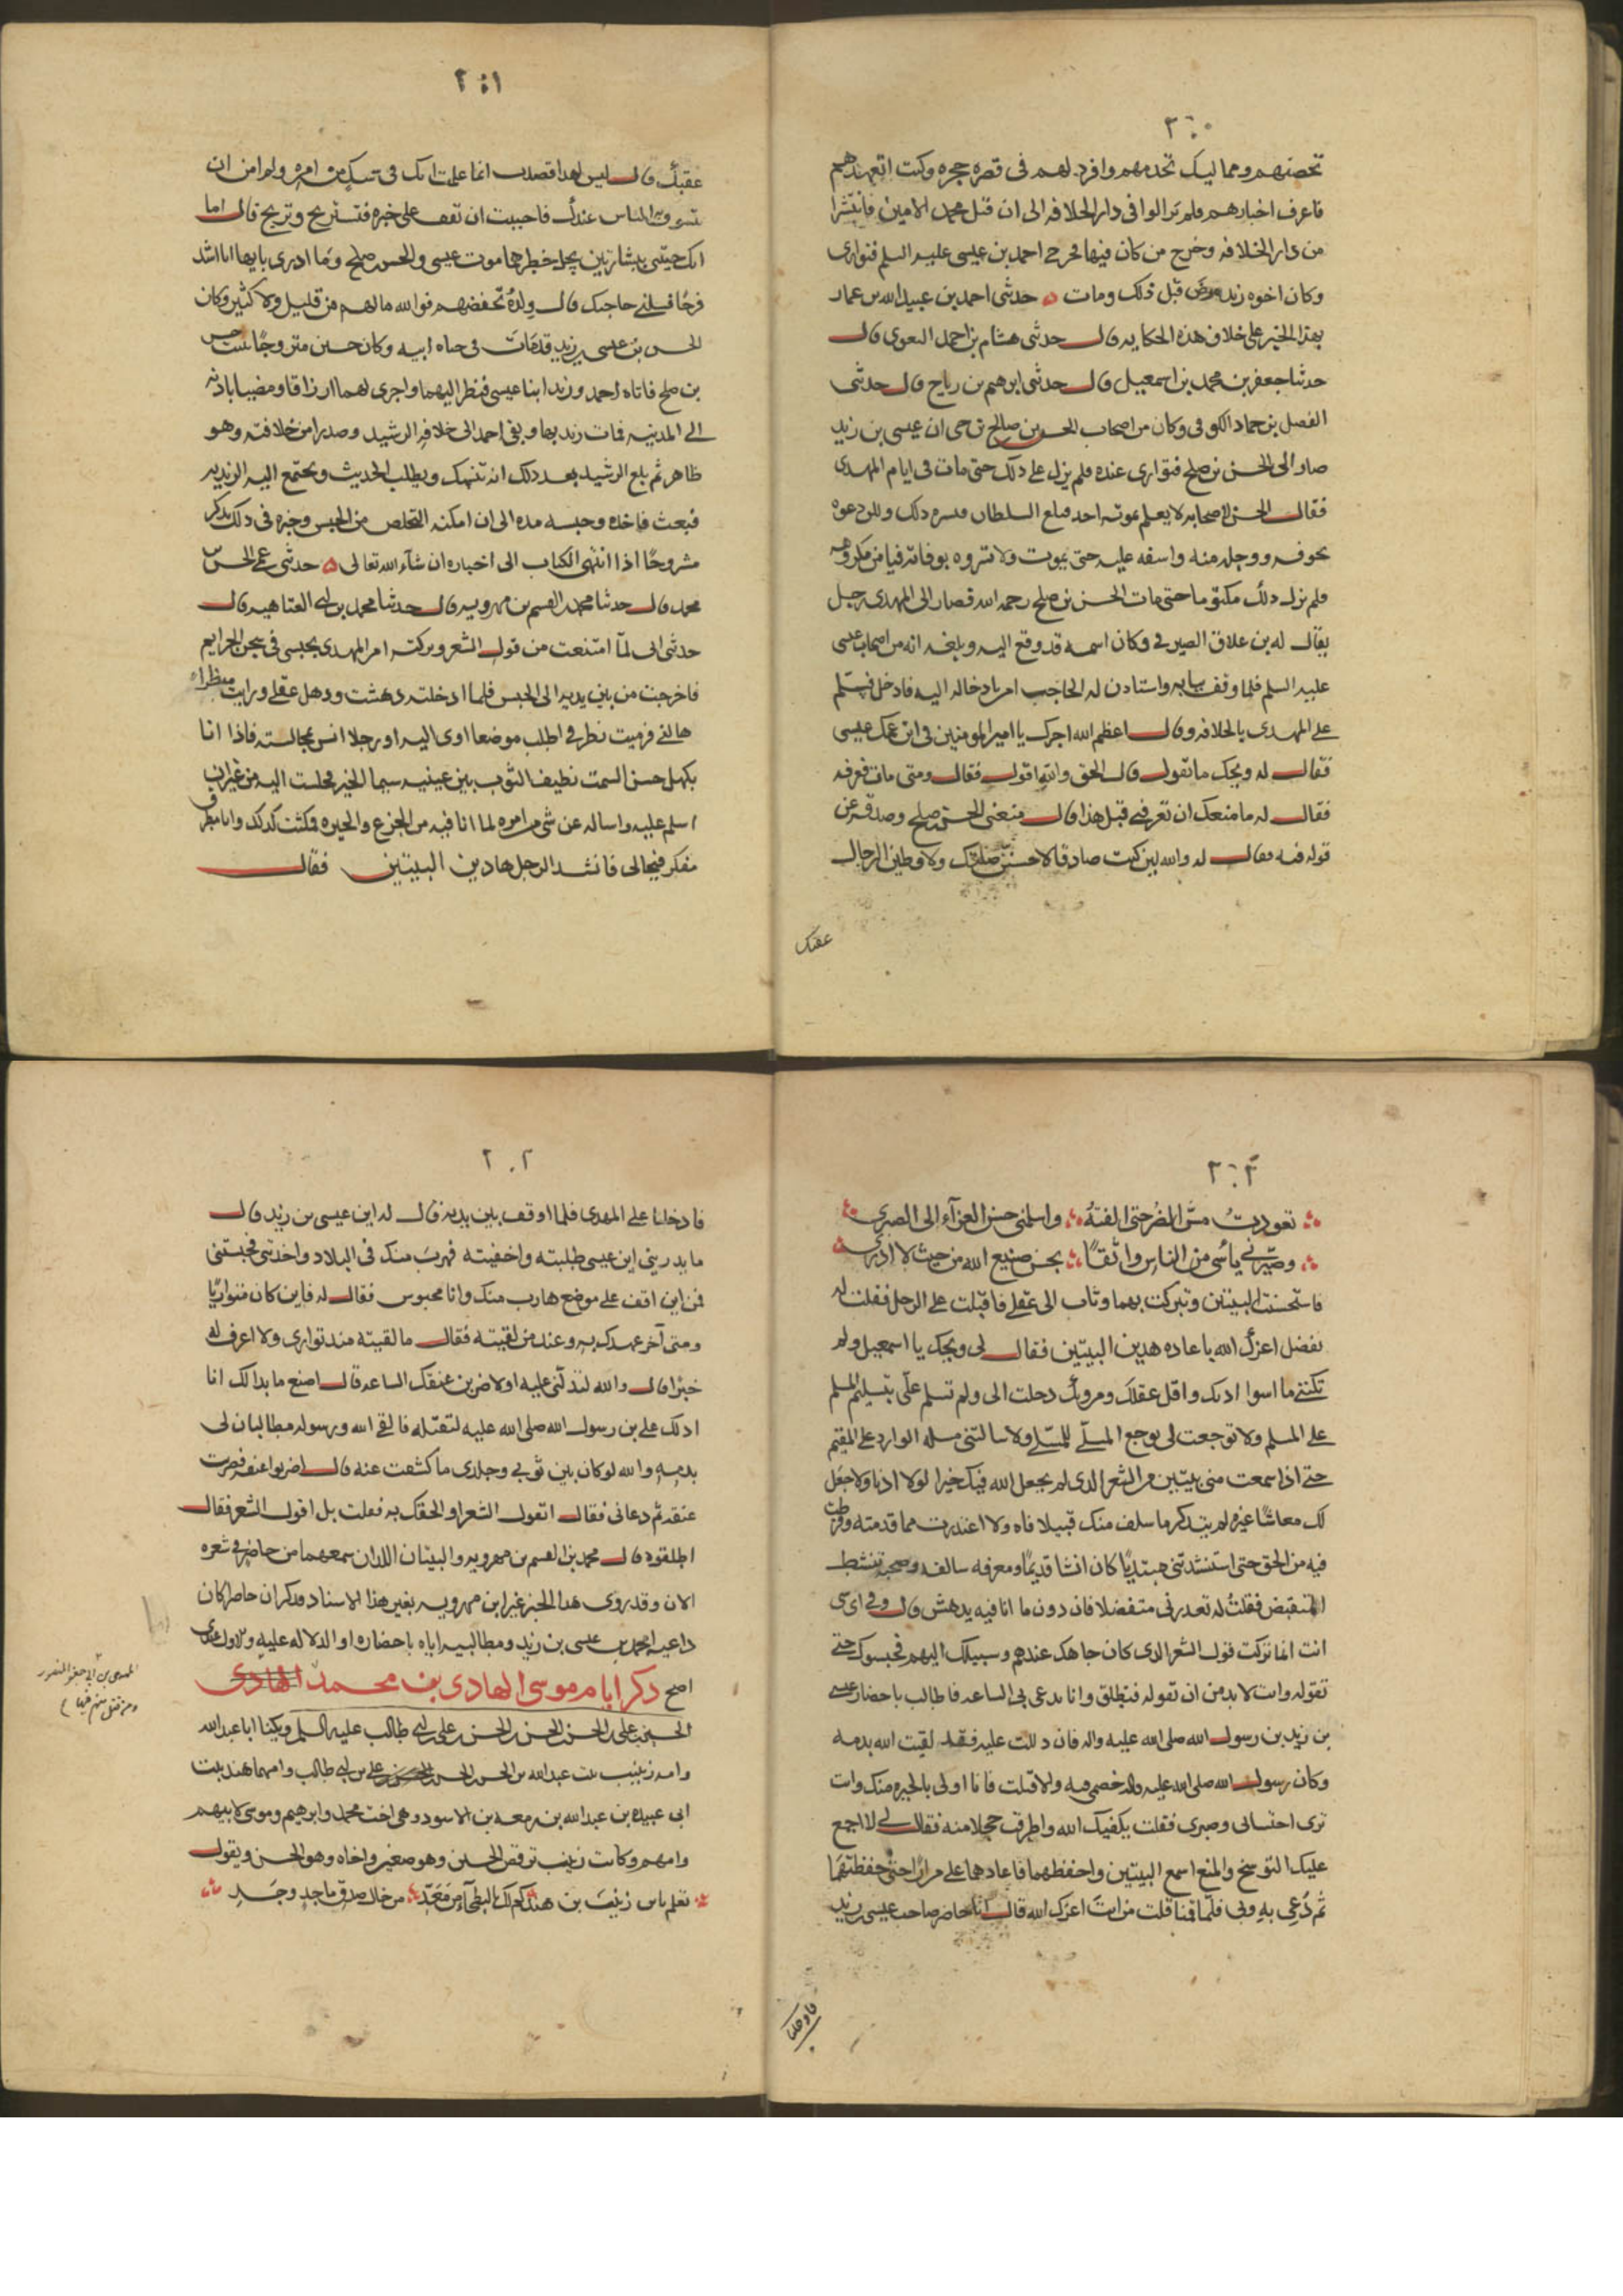 ٢٠٠
تحضنهم ومماليك تخدمهم وافرد لهم فى قصره حجره وكنت اتعهدهم
فاعرف اخبارهم فلم يزالوا فى دار الخلافه الى ان قتل محمد الامين فانتشرا
من دار الخلافه وخرج من كان فيها فخرج احمد بن عيسى عليه السلم فتوارى
وكان اخوه زيد مرض قبل ذلك ومات ه حدثنى احمد بن عبيد الله بن عمار
بهذا الخبر على خلاف هذه الحكايه قال حدثنى هشام بن احمد البغوى قال
حدثنا جعفر بن محمد بن اسمعيل قال حدثنى ابرهيم بن رياح قال حدثنى
الفضل بن حماد الكوفى وكان من اصحاب الحسن بن صالح بن حى ان عيسى بن زيد
صار الى الحسن بن صلح فتوارى عنده فلم يزل على ذلك حتى مات فى ايام المهدى
فقال الحسن لاصحابه لا يعلم بموته احد فيبلغ السلطان فيسره ذلك ولكن دعوه
بخوفه ووجله منه واسفه عليه حتى يموت ولا تسروه بوفاته فيامن مكروهه
فلم يزل ذلك مكتوما حتى مات الحسن بن صلح رحمه الله فصار الى المهدى رجل
يقال له بن علاق الصيرفى وكان اسمه قد وقع اليه وبلغه انه من اصحاب عيسى
عليه السلم فلما وقف ببابه واستاذن له الحاجب امر بادخاله اليه فادخل فسلم
على المهدى بالخلافه وقال اعظم الله اجرك يا امير المومنين فى ابن عمك عيسى
فقال له ويحك ما تقول قال الحق والله اقول فقال ومتى مات فعرفه
فقال له ما منعك ان تعرفنى قبل هذا قال منعنى الحسن بن صلح وصدقه عن
قوله فيه فقال له والله لين كنت صادقا لاحسنن صلتك ولاوطين الرجال
عقبك
٢٠١
عقبك قال ليس لهذا قصدت انما علمت انك فى شك من امره ولم امن ان
يتسوق الناس عندك فاحببت ان تقف على خبره فتستريح وتريح قال اما
انك جيتنى ببشارتين يجل خطرهما موت عيسى والحسن بن صلح وما ادرى بايهما انا اشد
فرحا فسلنى حاجتك قال ولده تحفظهم فوالله ما لهم من قليل ولا كثير وكان
الحسن بن عيسى بن زيد قد مات فى حياه ابيه وكان حسين متزوجا ببنت حسن
بن صلح فاتاه احمد وزيد ابنا عيسى فنظر اليهما واجرى لهما ارزاقا ومضيا باذنه
الى المدينه فمات زيد بها وبقى احمد الى خلافه الرشيد وصدرا من خلافته وهو
ظاهر ثم بلغ الرشيد بعد ذلك انه تنسك ويطلب الحديث ويجتمع اليه الزيديه
فبعث فاخذه وحبسه مده الى ان امكنه التخلص من الحبس وخبره فى ذلك يذكر
مشروحا اذا انتهى الكتاب الى اخباره ان شاء الله تعالى ه حدثنى عمى الحسن بن
محمد قال حدثنا محمد بن القسم بن مهرويه قال حدثنا محمد بن ابى العتاهيه قال
حدثنى ابى لما امتنعت من قول الشعر وتركته امر المهدى بحبسى فى سجن الجرايم
فاخرجت من بين يديه الى الحبس فلما ادخلته دهشت وذهل عقلى ورايت منظرا
هالنى فرميت نطرى اطلب موضعا اوى اليه او رجلا انس بمجالسته فاذا انا
بكهل حسن السمت نظيف الثوب بين عينيه سيما الخير فجلست اليه من غير ان
اسلم عليه واساله عن شى من امره لما انا فيه من الجزع والحيره فمكثت كذلك وانا مطرق
مفكر فى حالى فانشد الرجل هاذين البيتين فقال
٢٠٢
تعودت مس الضر حتى الفته واسلمنى حسن العزاء الى الصبرى
وصيرنى ياسى من الناس واثقا بحسن صنيع الله من حيث لا ادرى
فاستحسنت البيتين وتبركت بهما وثاب الى عقلى فاقبلت على الرجل فقلت له
تفضل اعزك الله باعاده هذين البيتين فقال لى ويحك يا اسمعيل ولم
تكننى ما اسوا ادبك واقل عقلك ومروتك دخلت الى ولم تسلم على تسليم المسلم
على المسلم ولا توجعت لى توجع المبتلى للمبتلى ولا سالتنى مسله الوارد على المقيم
حتى اذا سمعت منى بيتين من الشعر الذى لم يجعل الله فيك خيرا لولا ادبا ولا جعل
لك معاشا غيره لم تتذكر ما سلف منك قبيلا فاه ولا اعتذرت مما قدمته وفرطت
فيه من الحق حتى استنشدتنى مبتديا كان انسا قديما ومعرفه سالفه وصحبه تنشط
المنقبض فقلت له تعذرنى متفضلا فان دون ما انا فيه يدهش قال وفى اى شى
انت انما تركت قول الشعر الذى كان جاهك عندهم وسبيلك اليهم فحبسوك حتى
تقوله وانت لا بد من ان تقوله فتطلق وانا يدعى بى الساعه فاطالب باحضار عيسى
بن زيد بن رسول الله صلى الله عليه واله فان دللت عليه فقتل لقيت الله بدمه
وكان رسول الله صلى الله عليه واله خصمى فيه والا قتلت فانا اولى بالحيره منك وانت
ترى احتسابى وصبرى فقلت يكفيك الله واطرقت خجلا منه فقال لى لا اجمع
عليك التوبيخ والمنع اسمع البيتين واحفظهما فاعادهما على مرارا حتى حفظتهما
ثم دعى به وبى فلما قمنا قلت من انت اعزك الله قال انا حاضر صاحب عيسى بن زيد
فادخلنا
٢٠٢
فادخلنا على المهدى فلما اوقف بين يديه قال له اين عيسى بن زيد قال
ما يدرينى اين عيسى طلبته واخفيته فهرب منك فى البلاد واخذتنى فحبستنى
فمن اين اقف على موضع هارب منك وانا محبوس فقال له فاين كان متواريا
ومتى آخر عهدك به وعند من لقيته فقال ما لقيته منذ توارى ولا اعرف له
خبرا قال والله لتدلنى عليه او لاضربن عنقك الساعه قال اصنع ما بدا لك انا
ادلك على بن رسول الله صلى الله عليه لتقتله فالقى الله ورسوله مطالبان لى
بدمه والله لو كان بين ثوبى وجلدى ما كشفت عنه قال اضربوا عنقه فضربت
عنقه ثم دعانى فقال اتقول الشعر او الحقك به فقلت بل اقول الشعر فقال
اطلقوه قال محمد بن القسم بن مهرويه والبيتان اللذان سمعهما من حاضر فى شعره
الان وقد روى هذا الخبر غير ابن مهرويه بغير هذا الاسناد فذكر ان حاضرا كان
داعيه احمد بن عيسى بن زيد ومطالبيه اياه باحضاره او الدلاله عليه والاول عندى
اصح ذكر ايام موسى الهادى بن محمد الهادى
الحسين بن على بن الحسن بن الحسن بن الحسن بن على بن ابى طالب عليه السلم ويكنا ابا عبد الله
وامه زينب بنت عبد الله بن الحسن بن الحسن بن على بن ابى طالب وامها هند بنت
ابى عبيده بن عبد الله بن زمعه بن الاسود وهى اخت محمد وابرهيم وموسى لابيهم
وامهم وكانت زينب ترقص الحسين وهو صغير واخاه وهو الحسن وتقول
تعلم يا بن زينب بن هند كم لك بالبطحاء من معد من خال صدق ماجد وجد
المهدى بن ابى جعفر المنصور
ومن قتل منهم فيها